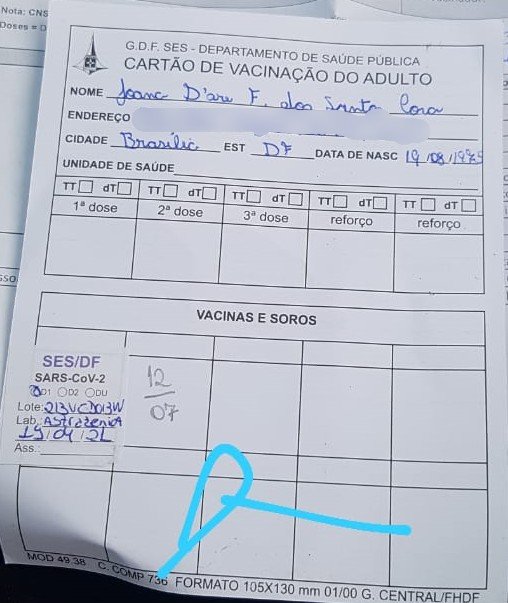 Nota: CNS
Doses = D
G.D.F. SES - DEPARTAMENTO DE SAÚDE PÚBLICA
CARTÃO DE VACINAÇÃO DO ADULTO
NOME Joana D'arc F. dos Santos
ENDEREÇO
CIDADE Brasília EST DF DATA DE NASC 19/08/1975
UNIDADE DE SAÚDE
TT dT TT dT TT dT TT dT TT dT
1ª dose 2ª dose 3ª dose reforço reforço
VACINAS E SOROS
SES/DF
SARS-CoV-2
D1 D2 DU
Lote: 213VCD013W
Lab.: Astrazenica
19/04/21
Ass.:
12
07
MOD 49.38 C. COMP 736 FORMATO 105X130 mm 01/00 G. CENTRAL/FHDF